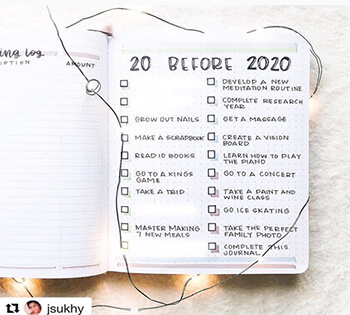 ing log
PTION AMOUNT
20 BEFORE 2020
GROW OUT NAILS
MAKE A SCRAPBOOK
READ 10 BOOKS
GO TO A KINGS
GAME
TAKE A TRIP
MASTER MAKING
7 NEW MEALS
DEVELOP A NEW
MEDITATION ROUTINE
COMPLETE RESEARCH
YEAR
GET A MASSAGE
CREATE A VISION
BOARD
LEARN HOW TO PLAY
THE PIANO
GO TO A CONCERT
TAKE A PAINT AND
WINE CLASS
GO ICE SKATING
TAKE THE PERFECT
FAMILY PHOTO
COMPLETE THIS
JOURNAL
jsukhy